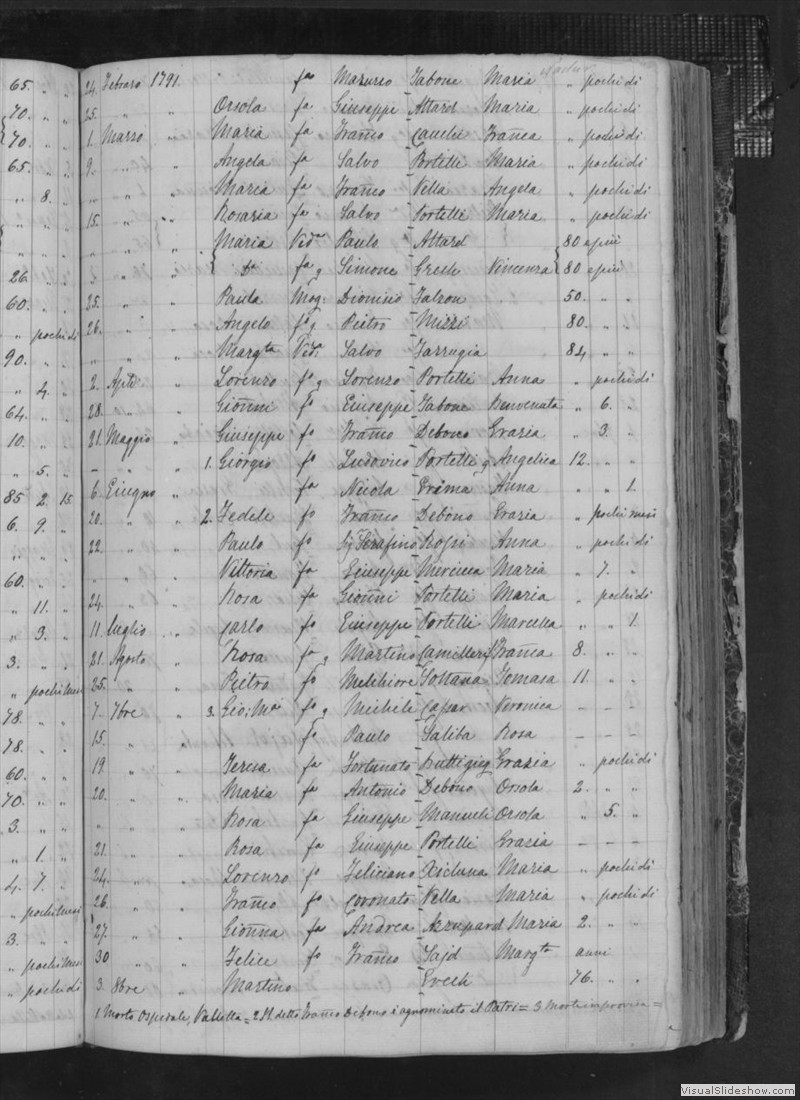 65. " " 24. Febraro 1791. " fa Mazureo Tabone Maria " pochi di
70. " " 25. " " Orsola fa Giuseppe Attard Maria " pochi di
70. " " 1. Marzo " Maria fa Franco Camilri Franca " pochi di
65. " " 9. " " Angela fa Salvo Portelli Maria " pochi di
" 8. " " " " Maria fa Franco Vella Angela " pochi di
15. " " Rosaria fa Salvo Portelli Maria " pochi di
" " " Maria Vida Paulo Attard 80 epiu
26. " " " " Da fa g Simone Grech Vincenza 80 epiu
60. " " 25. " " Paula Mog: Dionisio Falzon 50. " "
" pochi di 26. " " Angelo fo g Pietro Mizzi 80. " "
90. " " " " " Margta Vida Salvo Farrugia 84 " "
" 4. " 2. Aple " Lorenzo fo g Lorenzo Portelli Anna " pochi di
64. " " 28. " " Gionni fo Giuseppe Tabone Benvenuta " 6. "
10. " " 21. Maggio " Giuseppe fo Franco Debono Grazia " 3. "
" 5. " - " " 1. Giorgio fo Ludovico Portelli g Angelica 12. " "
85 2. 15 6. Giugno " fa Nicola Grima Anna " " 1.
6. 9. " 20. " " 2. Fedele fo Franco Debono Grazia " pochi mesi
22. " " Paulo fo Serafino Rossi Anna " pochi di
60. " " " " " Vittoria fa Giuseppe Mercieca Maria " 7. "
" 11. " 24. " " Rosa fa Gionni Portelli Maria " pochi di
" 3. " 11. Luglio " Carlo fo Giuseppe Portelli Marcella " " 1.
3. " " 21. Agosto " Rosa fa g Martino Camilleri Franca 8. " "
" pochi mesi 25. " " Pietro fo Melchiore Fontana Tomasa 11 " "
78. " " 7. 7bre " 3. Gio: Ma fo g Michele Capao Veronica - - -
78. " " 15. " " fa Paulo Saliba Rosa - - -
60. " " 19. " " Teresa fa Fortunato Buttigieg Grazia " pochi di
70. " " 20. " " Maria fa Antonio Debono Orsola 2. " "
3. " " " " " Rosa fa Giuseppe Manueli Orsola " 5. "
" 1. " 21. " " Rosa fa Giuseppe Portelli Grazia - - -
4. 7. " 24. " " Lorenzo fo Feliciano Xicluna Maria " pochi di
" pochi mesi 26. " " Franco fo Coronato Vella Maria " pochi di
3. " " 27. " " Gionna fa Andrea Azzupard Maria 2. " "
" pochi mesi 30 " " Felice fo Franco Sajd Margta anni
" pochi di 3. 8bre " Martino Grech 76. " "
1. Morto Ospedale, Valletta = 2. Il detto Franco Debono è agnominato il Patri = 3 Morte improvisa =
VisualSlideshow.com